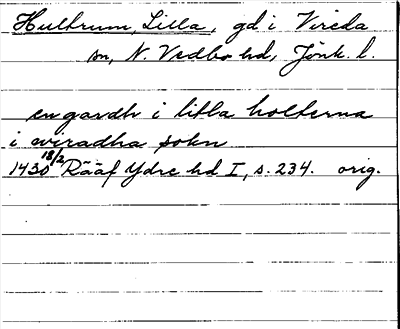 Hultrum, Lilla, gd i Vireda
sn, N. Vedbo hd, Jönk. l.
en gardh i litla holterna
i wiradha sokn
1430 18/2 Rääf Ydre hd I, s. 234. orig.